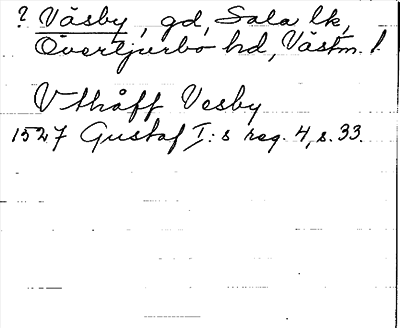 ? Väsby, gd, Sala lk,
Övertjurbo hd, Västm. l.
V thåff Vesby
1527 Gustaf I:s reg. 4, s. 33.